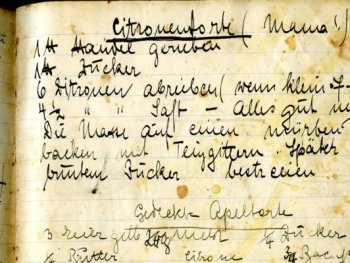 Citronentorte (Mama!)
1 ℔ Mandel gerieben
1 ℔ Zucker
6 Zitronen abreiben (wenn klein
4½ " " Saft – Alles gut
Die Masse auf einen mürben
backen mit Teiggittern. Später
Zucker bestreuen
Gedeckte Apfeltorte
3 Eier ¼ Zucker
½ Butter Citrone